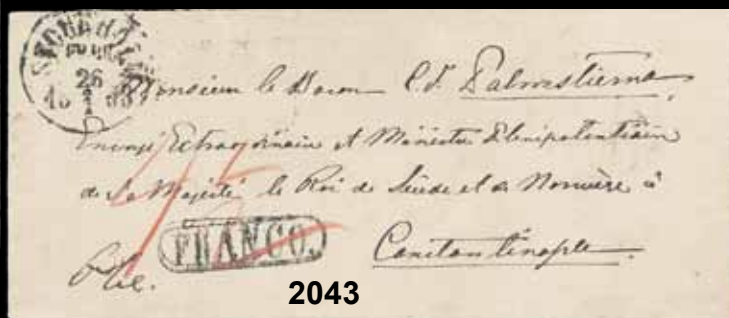 STOCKHOLM
26
Monsieur le Baron C. F. Palmstierna,
Envoyé Extraordinaire et Ministre Plenipotentiaire
de Sa Majesté le Roi de Suède et de Norvège à
FRANCO.
Constantinople.
2043